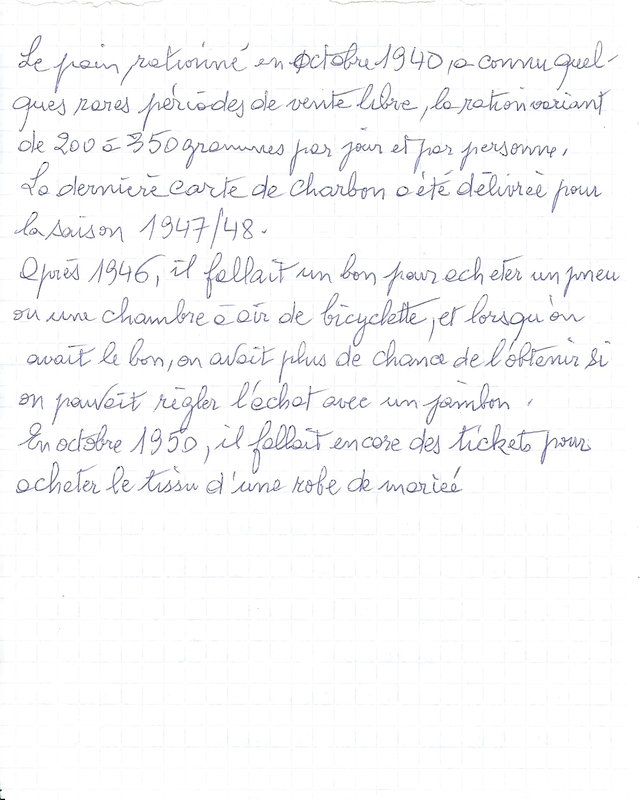 Le pain rationné en Octobre 1940, a connu quel-
ques rares périodes de vente libre, la ration variant
de 200 à 350 grammes par jour et par personne.
La dernière carte de charbon a été délivrée pour
la saison 1947/48.
Après 1946, il fallait un bon pour acheter un pneu
ou une chambre à air de bicyclette, et lorsqu'on
avait le bon, on avait plus de chance de l'obtenir si
on pouvait règler l'achat avec un jambon.
En octobre 1950, il fallait encore des tickets pour
acheter le tissu d'une robe de mariée